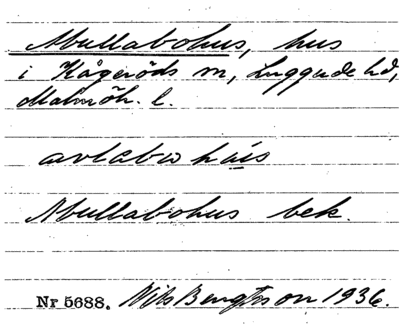 Abullabohus, hus
i Kågeröds sn, Luggude hd,
Malmöh. l.
Abullabohus bek.
Nr 5688. Nils Bengtsson 1936.